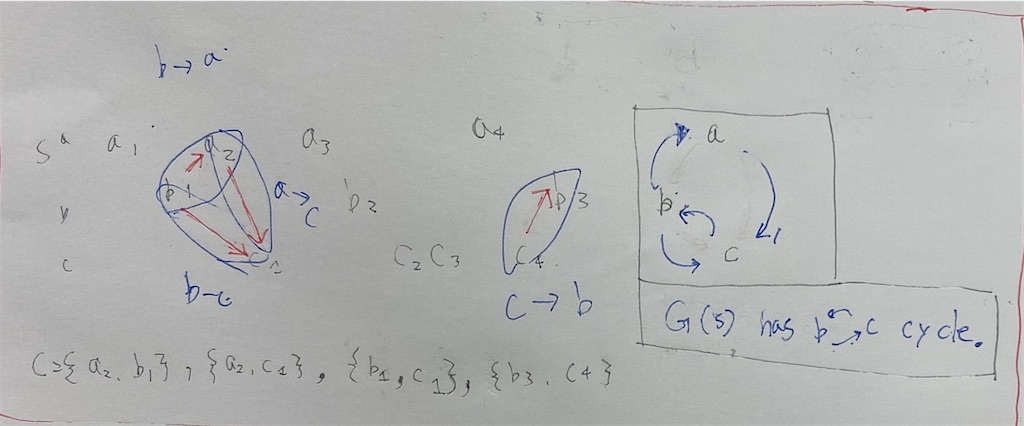 b → a
S a a1 a2 a3 a4 a
b1 a → c b2 b3 b
c c1 c2 c3 c4 c
b - c c → b
G(s) has b c cycle.
C={a2, b1}, {a2, c1}, {b1, c1}, {b3, c4}